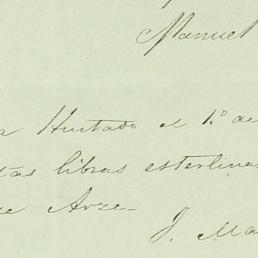 Manuel
a Hurtado el 1.º de
tas libras esterlinas
se Arze-
J. Ma